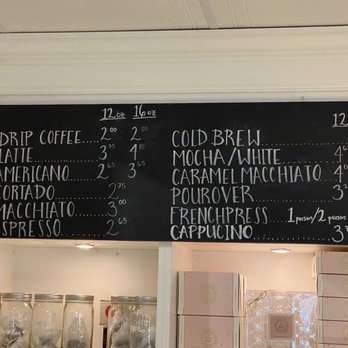 12oz 16oz
DRIP COFFEE 2.00 2.50
LATTE 3
AMERICANO 2.65 3
CORTADO 2.75
MACCHIATO 3.00
ESPRESSO 2.65
12
COLD BREW
MOCHA/WHITE 4
CARAMEL MACCHIATO 4
POUROVER 3
FRENCHPRESS 1 person/2 person
CAPPUCINO 3